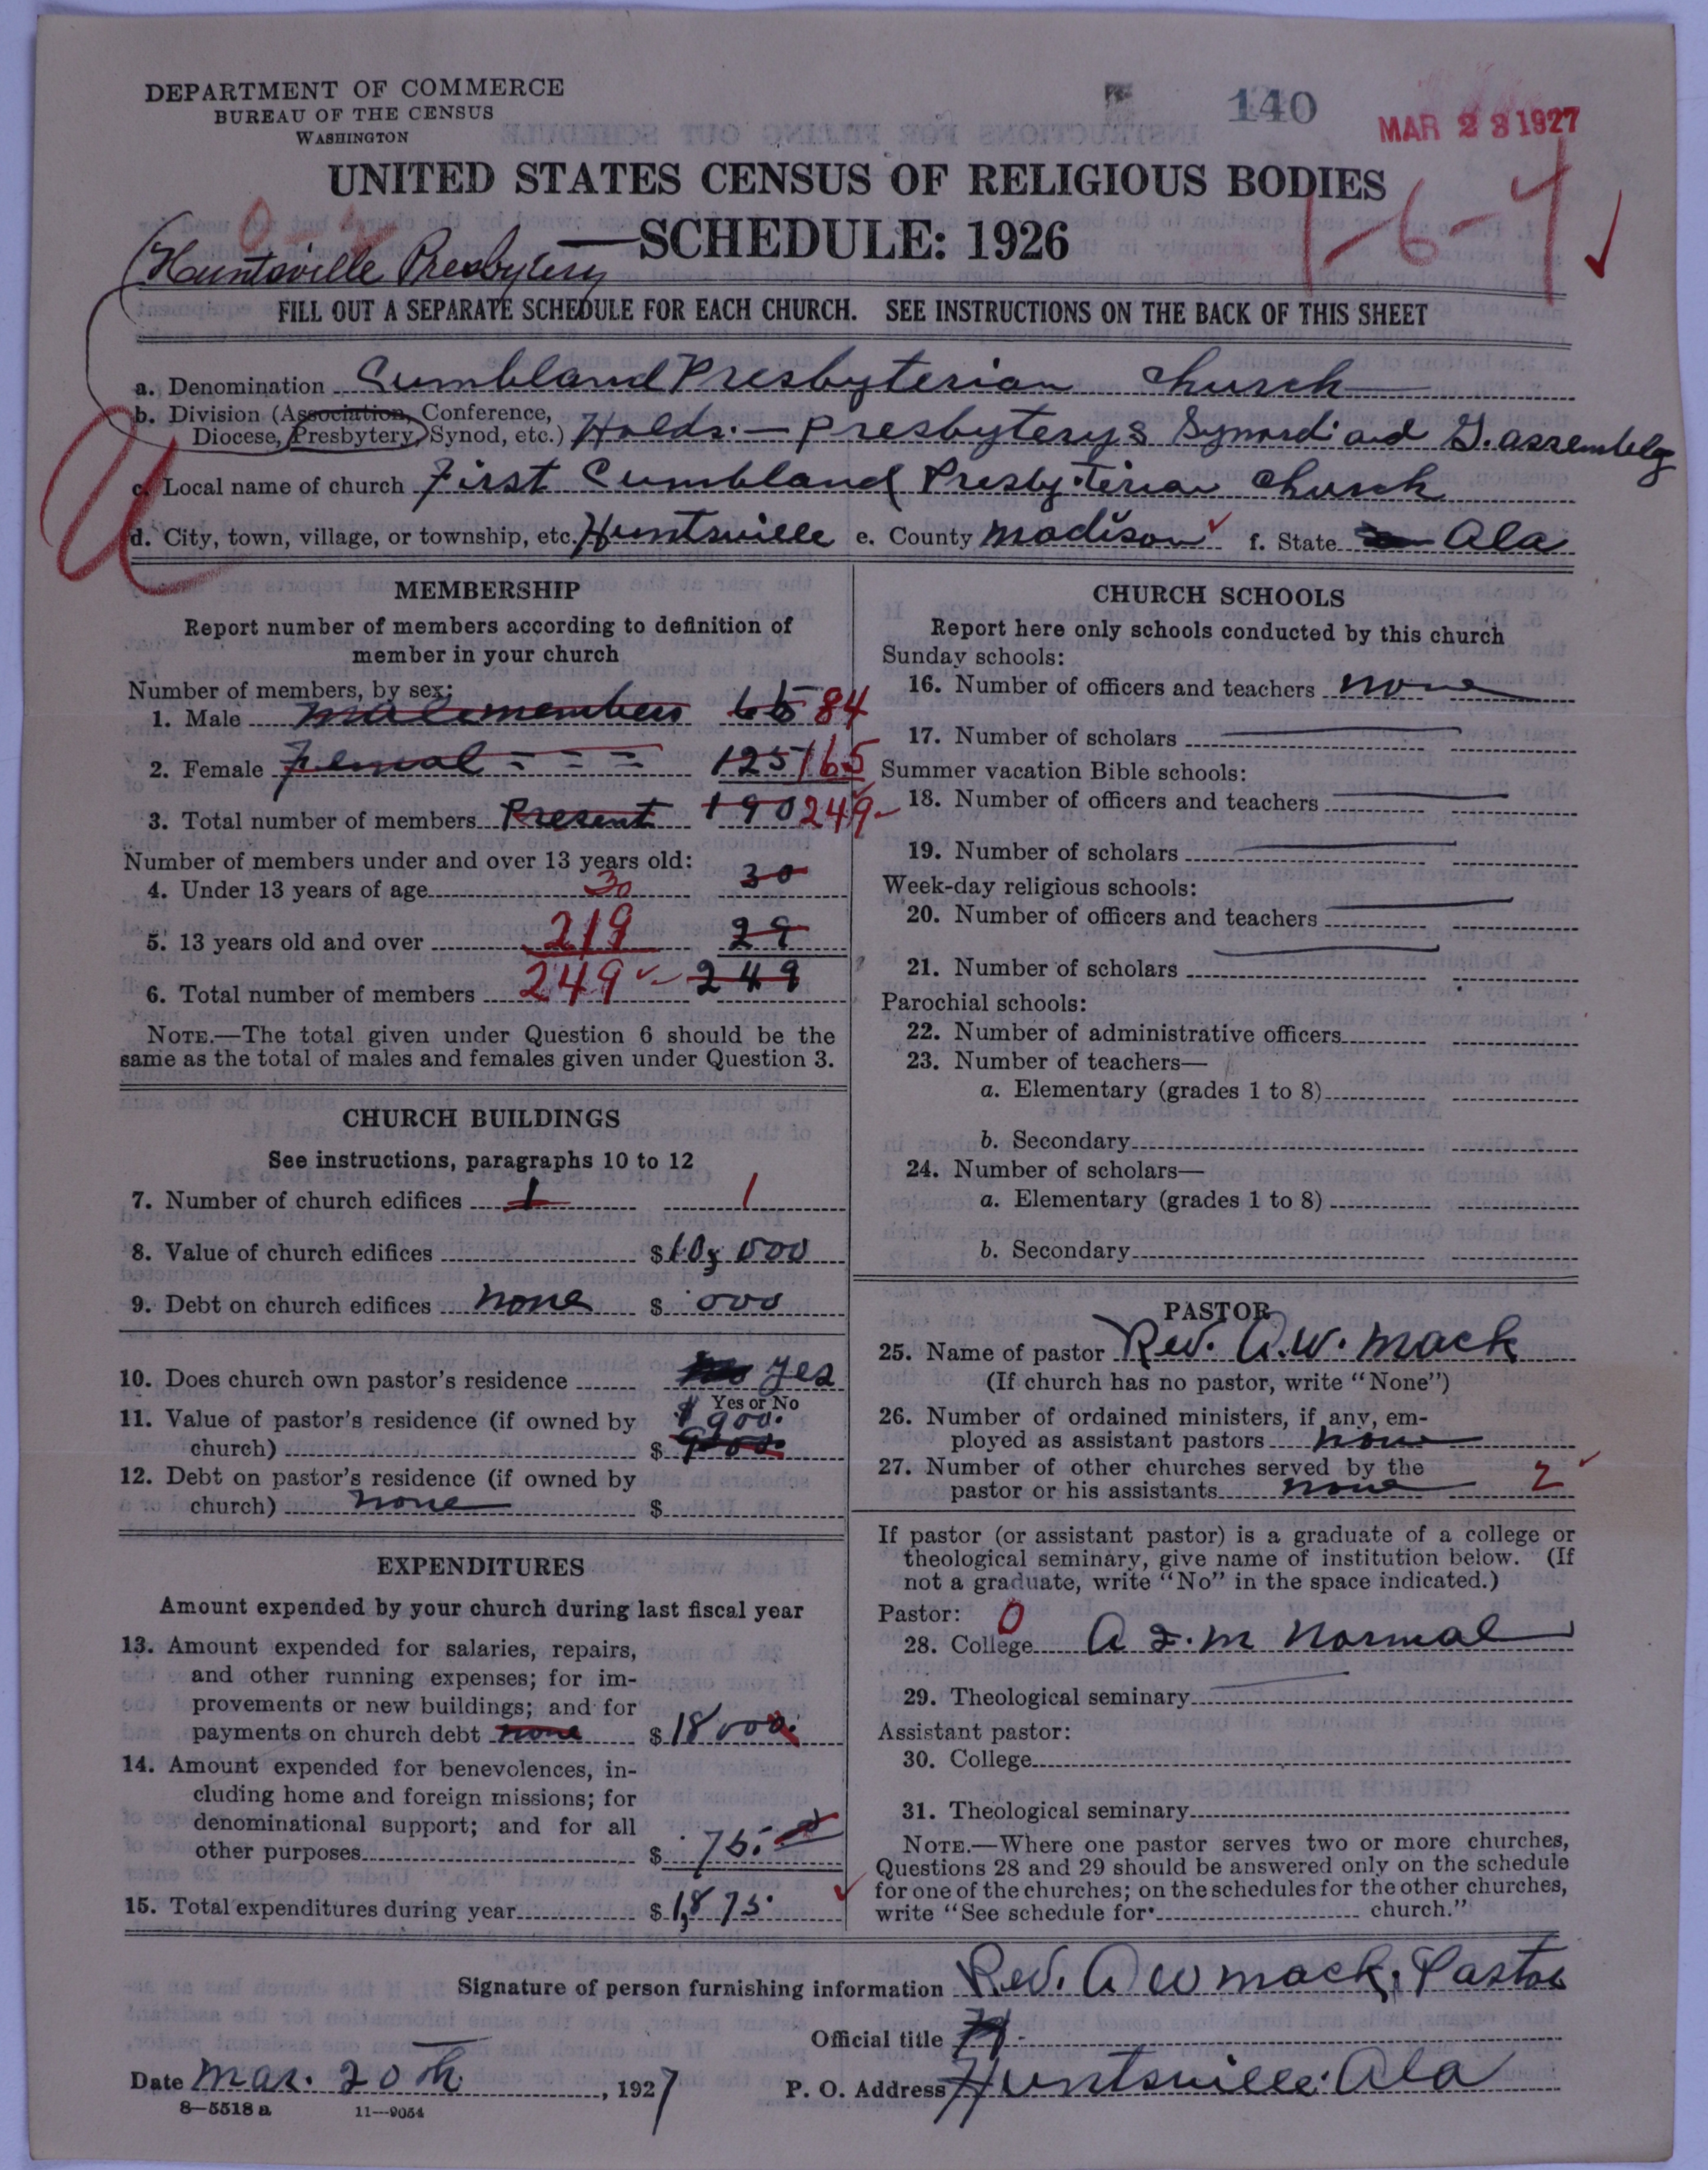 DEPARTMENT OF COMMERCE
BUREAU OF THE CENSUS
WASHINGTON
140
MAR 23 1927
UNITED STATES CENSUS OF RELIGIOUS BODIES
SCHEDULE: 1926
1-6-4
Huntsville Presbytery
FILL OUT A SEPARATE SCHEDULE FOR EACH CHURCH. SEE INSTRUCTIONS ON THE BACK OF THIS SHEET
a. Denomination Cumbland Presbyterian Church
b. Division (Association, Conference,
Diocese, Presbytery, Synod, etc.) Holds:- Presbyterys Synord and G. assembly
c. Local name of church First Cumbland Presbyterian Church
d. City, town, village, or township, etc. Huntsville e. County Madison f. State Ala
MEMBERSHIP
Report number of members according to definition of
member in your church
Number of members, by sex:
1. Male male members 65 84
2. Female Femal = = = 125 165
3. Total number of members Present 190 249
Number of members under and over 13 years old:
4. Under 13 years of age 30 30
5. 13 years old and over 219 29
6. Total number of members 249 249
NOTE.—The total given under Question 6 should be the
same as the total of males and females given under Question 3.
CHURCH BUILDINGS
See instructions, paragraphs 10 to 12
7. Number of church edifices 1 1
8. Value of church edifices $10,000
9. Debt on church edifices none $ 000
10. Does church own pastor's residence Yes
Yes or No
11. Value of pastor's residence (if owned by $900.
church) $
12. Debt on pastor's residence (if owned by
church) none $
EXPENDITURES
Amount expended by your church during last fiscal year
13. Amount expended for salaries, repairs,
and other running expenses; for im-
provements or new buildings; and for
payments on church debt none $18000.
14. Amount expended for benevolences, in-
cluding home and foreign missions; for
denominational support; and for all
other purposes $ 75.
15. Total expenditures during year $1,875.
CHURCH SCHOOLS
Report here only schools conducted by this church
Sunday schools:
16. Number of officers and teachers none
17. Number of scholars
Summer vacation Bible schools:
18. Number of officers and teachers
19. Number of scholars
Week-day religious schools:
20. Number of officers and teachers
21. Number of scholars
Parochial schools:
22. Number of administrative officers
23. Number of teachers—
a. Elementary (grades 1 to 8)
b. Secondary
24. Number of scholars—
a. Elementary (grades 1 to 8)
b. Secondary
PASTOR
25. Name of pastor Rev. A.W. Mack
(If church has no pastor, write "None")
26. Number of ordained ministers, if any, em-
ployed as assistant pastors none
27. Number of other churches served by the
pastor or his assistants none 2
If pastor (or assistant pastor) is a graduate of a college or
theological seminary, give name of institution below. (If
not a graduate, write "No" in the space indicated.)
Pastor: 0
28. College A & M Normal
29. Theological seminary
Assistant pastor:
30. College
31. Theological seminary
NOTE.—Where one pastor serves two or more churches,
Questions 28 and 29 should be answered only on the schedule
for one of the churches; on the schedules for the other churches,
write "See schedule for church."
Signature of person furnishing information Rev. A W Mack, Pastor
Official title
Date Mar. 20th, 1927 P. O. Address Huntsville. Ala
8—5518 a 11—9054